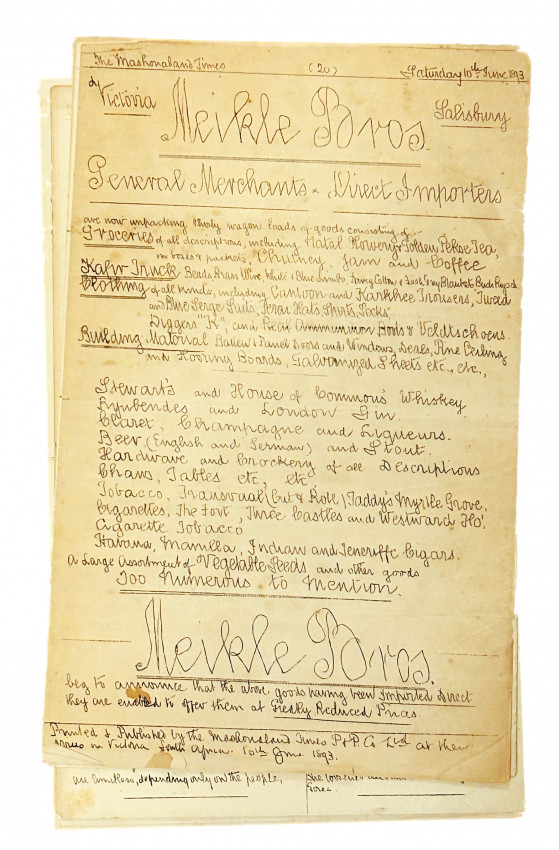 The Mashonaland Times (20) Saturday 10th June 1893
& Victoria Meikle Bros. Salisbury
General Merchants & Direct Importers
are now unpacking thirty wagon loads of goods consisting of:-
Groceries of all descriptions, including Natal Flowery & Golden Pekoe Tea,
in boxes & packets, Chutney, Jam and Coffee
Kafir Truck Beads, Brass Wire, White & Blue Limbo, Fancy Cotton & Blankets
Clothing of all kinds, including Cantoon and Karkhee Trousers, Tweed
and Blue Serge Suits, Terai Hats, Shirts, Socks
Diggers "K", and Real Ammunition Boots & Veldtschoens.
Building Material Batten & Panel Doors and Windows, Deals, Pine Ceiling
and Flooring Boards, Galvanized Sheets etc., etc.,
Stewart's and House of Commons' Whiskey
Rynbendes and London Gin.
Claret, Champagne and Liqueurs.
Beer (English and German) and Stout.
Hardware and Crockery of all Descriptions
Chairs, Tables etc, etc
Tobacco, Transvaal (Cut & Role) Taddy's Myrtle Grove.
Cigarettes, The Fort, Three Castles and Westward Ho'.
Cigarette Tobacco
Havana, Manilla, Indian and Teneriffe Cigars.
A Large Assortment of Vegetable Seeds and other goods
Too Numerous to Mention.
Meikle Bros.
beg to announce that the above goods having been Imported Direct
they are enabled to offer them at Greatly Reduced Prices.
Printed & Published by the Mashonaland Times P & P. Co Ltd at their
in Victoria South Africa. 10th June 1893.
are limitless, depending only on the people, she